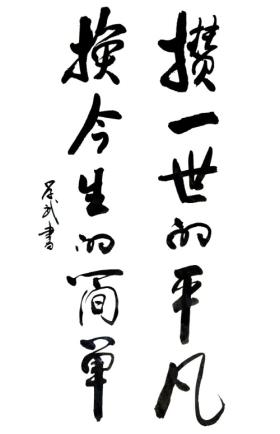 攒一世的平凡
换今生的简单
武书